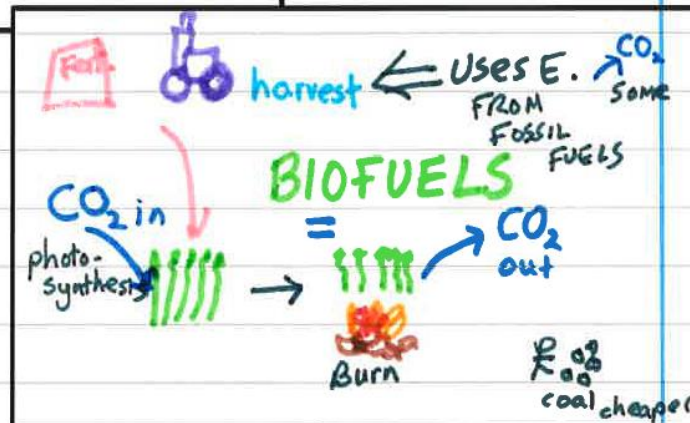 Fert.
harvest
USES E.
FROM
FOSSIL
FUELS
CO₂
some
BIOFUELS
=
CO₂ in
photo-
synthesis
CO₂
out
Burn
coal cheaper